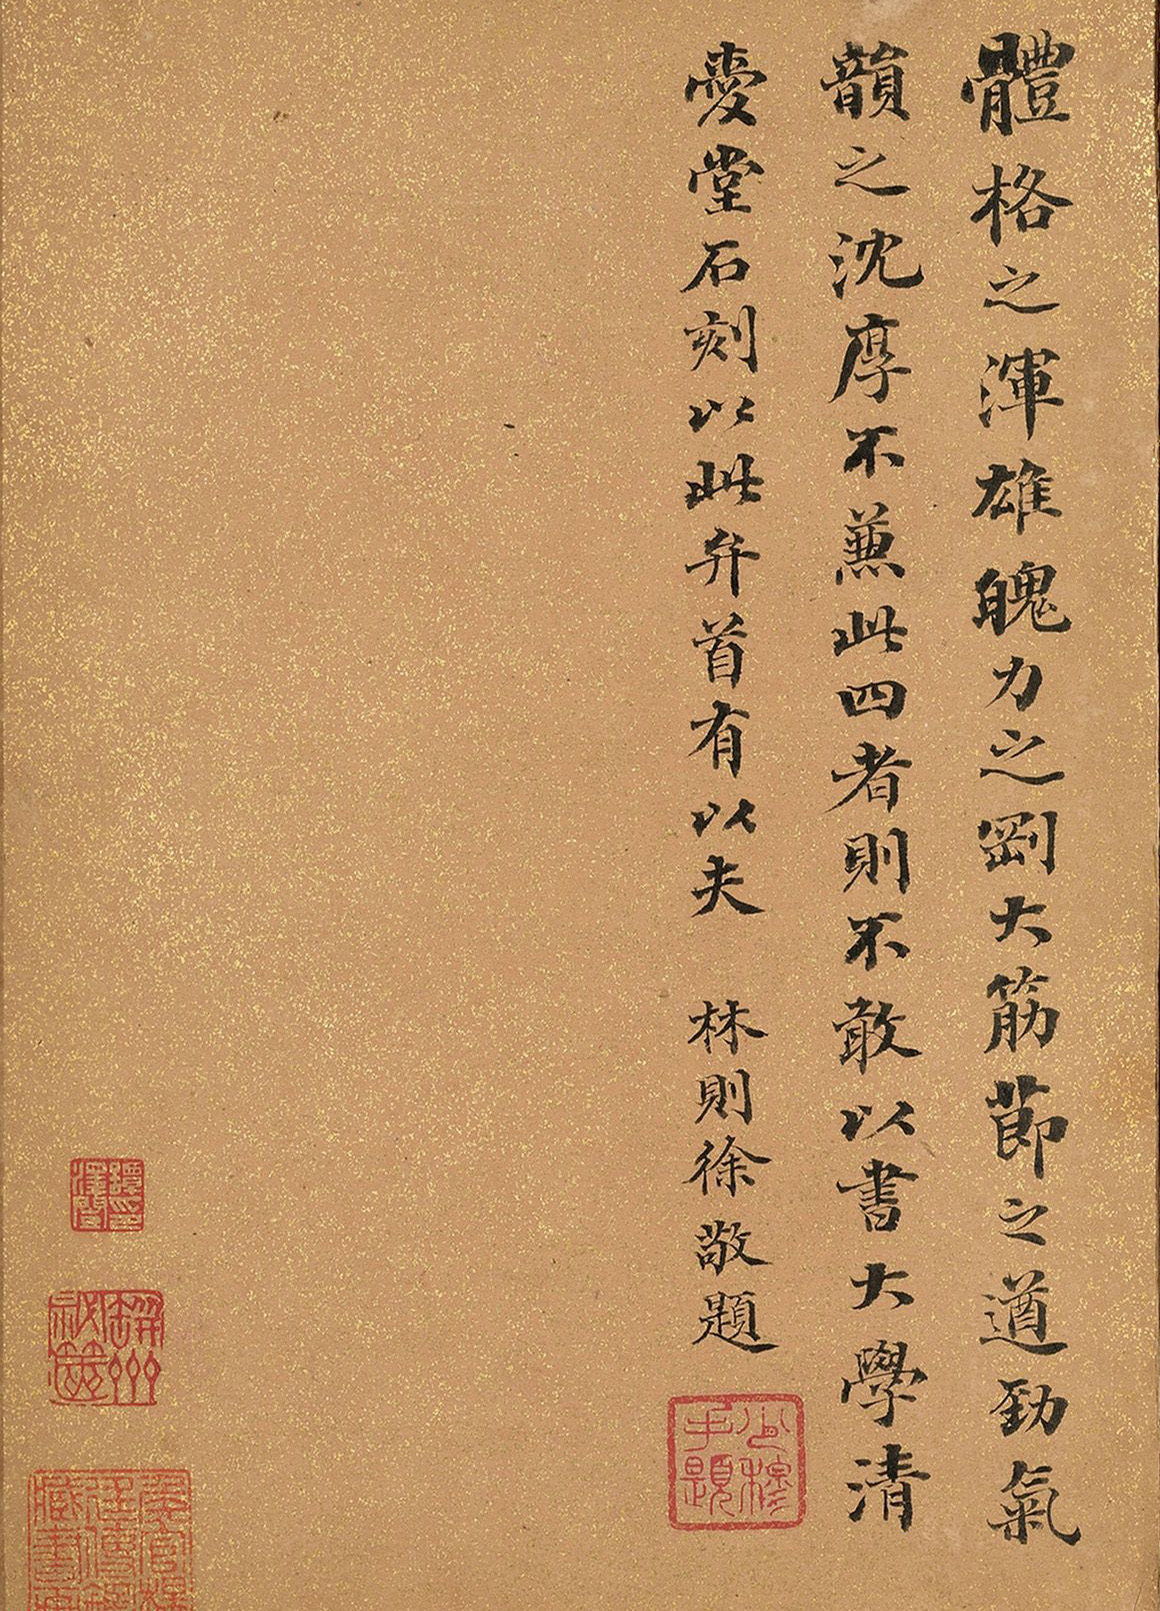 體格之渾雄魄力之劉大筋節之遒勁氣
韻之沈厚不蒹此四者則不敢以書大學清
愛堂石刻以此弁首有以夫 林則徐敬題
少穆手題